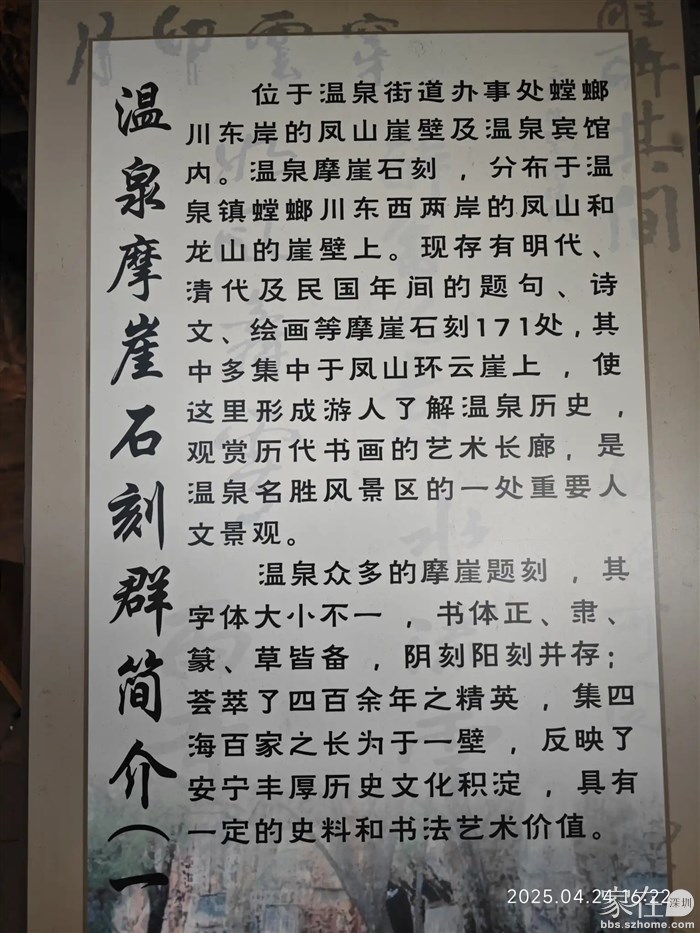 温泉摩崖石刻群简介(一
位于温泉街道办事处螳螂
川东岸的凤山崖壁及温泉宾馆
内。温泉摩崖石刻，分布于温
泉镇螳螂川东西两岸的凤山和
龙山的崖壁上。现存有明代、
清代及民国年间的题句、诗
文、绘画等摩崖石刻171处,其
中多集中于凤山环云崖上，使
这里形成游人了解温泉历史，
观赏历代书画的艺术长廊，是
温泉名胜风景区的一处重要人
文景观。
温泉众多的摩崖题刻，其
字体大小不一，书体正、隶、
篆、草皆备，阴刻阳刻并存；
荟萃了四百余年之精英，集四
海百家之长为于一壁，反映了
安宁丰厚历史文化积淀，具有
一定的史料和书法艺术价值。
2025.04.24 16:22
家在深圳
bbs.szhome.com